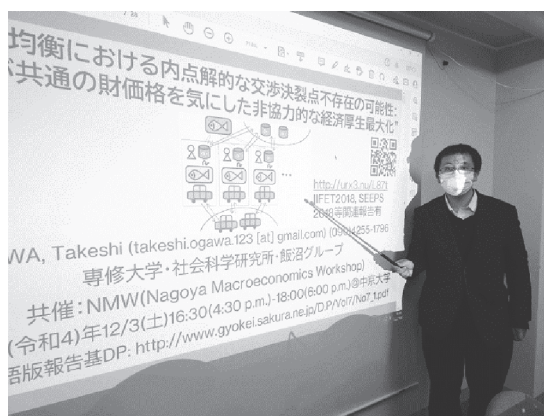 均衡における内点解的な交渉決裂点不存在の可能性:
共通の財価格を気にした非協力的な経済厚生最大化"
...
IIFET2018, SEEPS
2018等関連報告有
WA, Takeshi (takeshi.ogawa.123 [at] gmail.com) (090)4255-1796
専修大学・社会科学研究所・飯沼グループ
共催:NMW(Nagoya Macroeconomics Workshop)
(令和4)年12/3(土)16:30(4:30 p.m.)-18:00(6:00 p.m.)@中京大学
語版報告基DP: http://www.gyokei.sakura.ne.jp/D.P/Vol7/No7_1.pdf